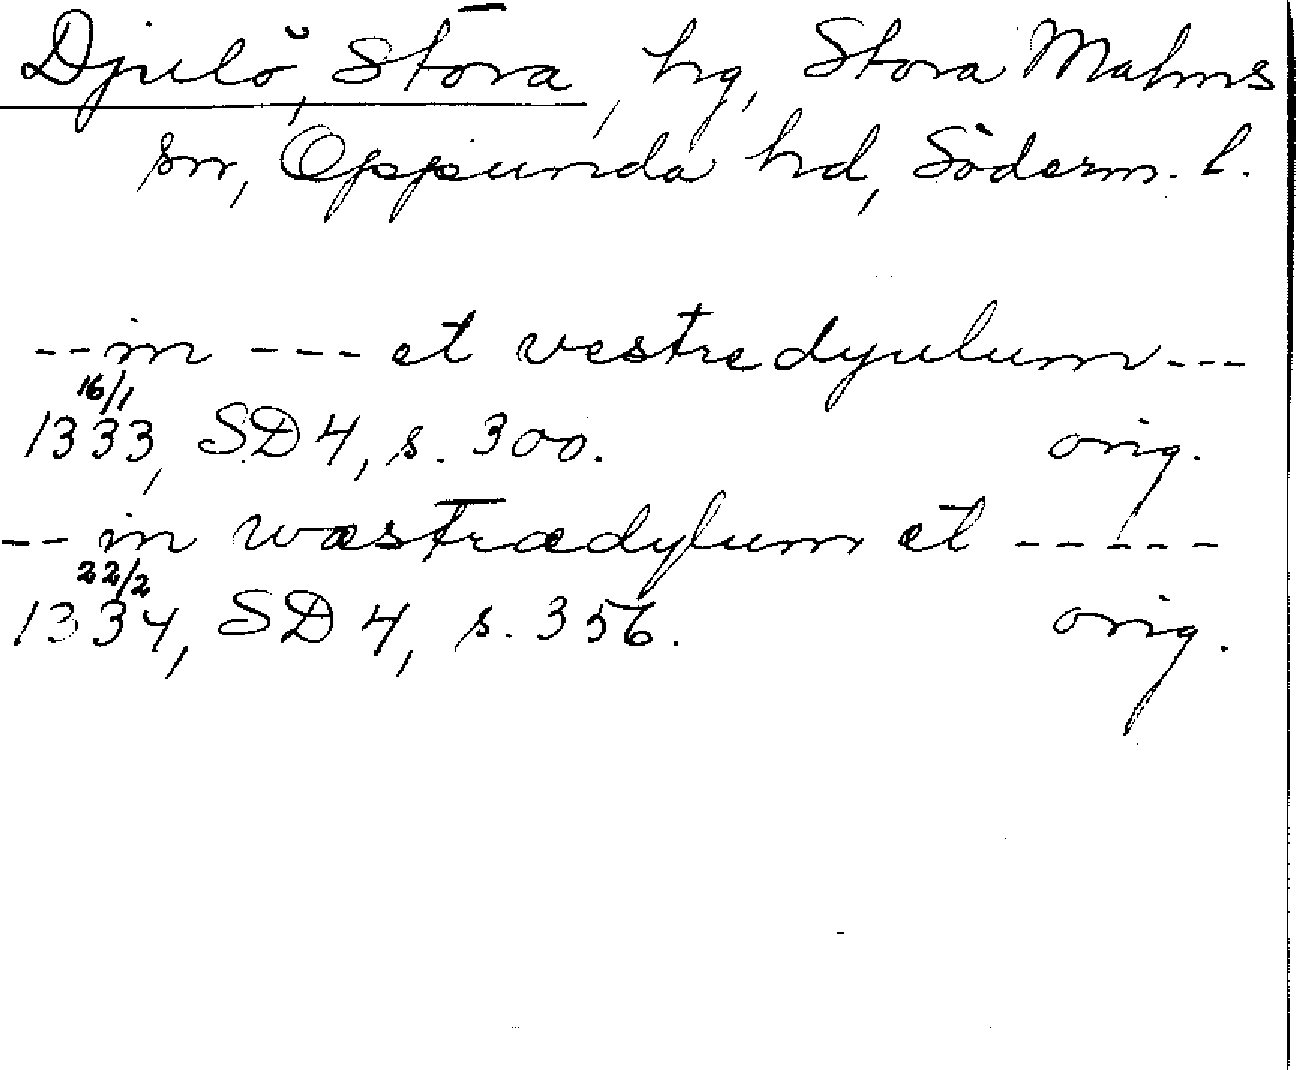 Djulö, Stora, hg, Stora Malms
sn, Oppunda hd, Söderm. l.
--in --- et vestredyulum---
16/1
1333, SD 4, s. 300. orig.
--in wæstrædylum et -----
22/2
1334, SD 4, s. 356. orig.